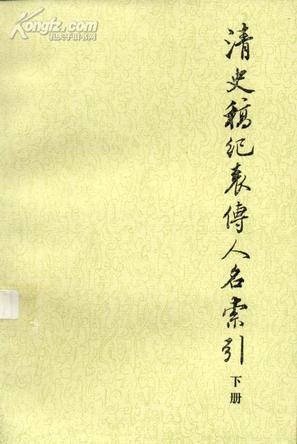 Kongfz.com
孔夫子旧书网
清史稿纪表傳人名索引
下册